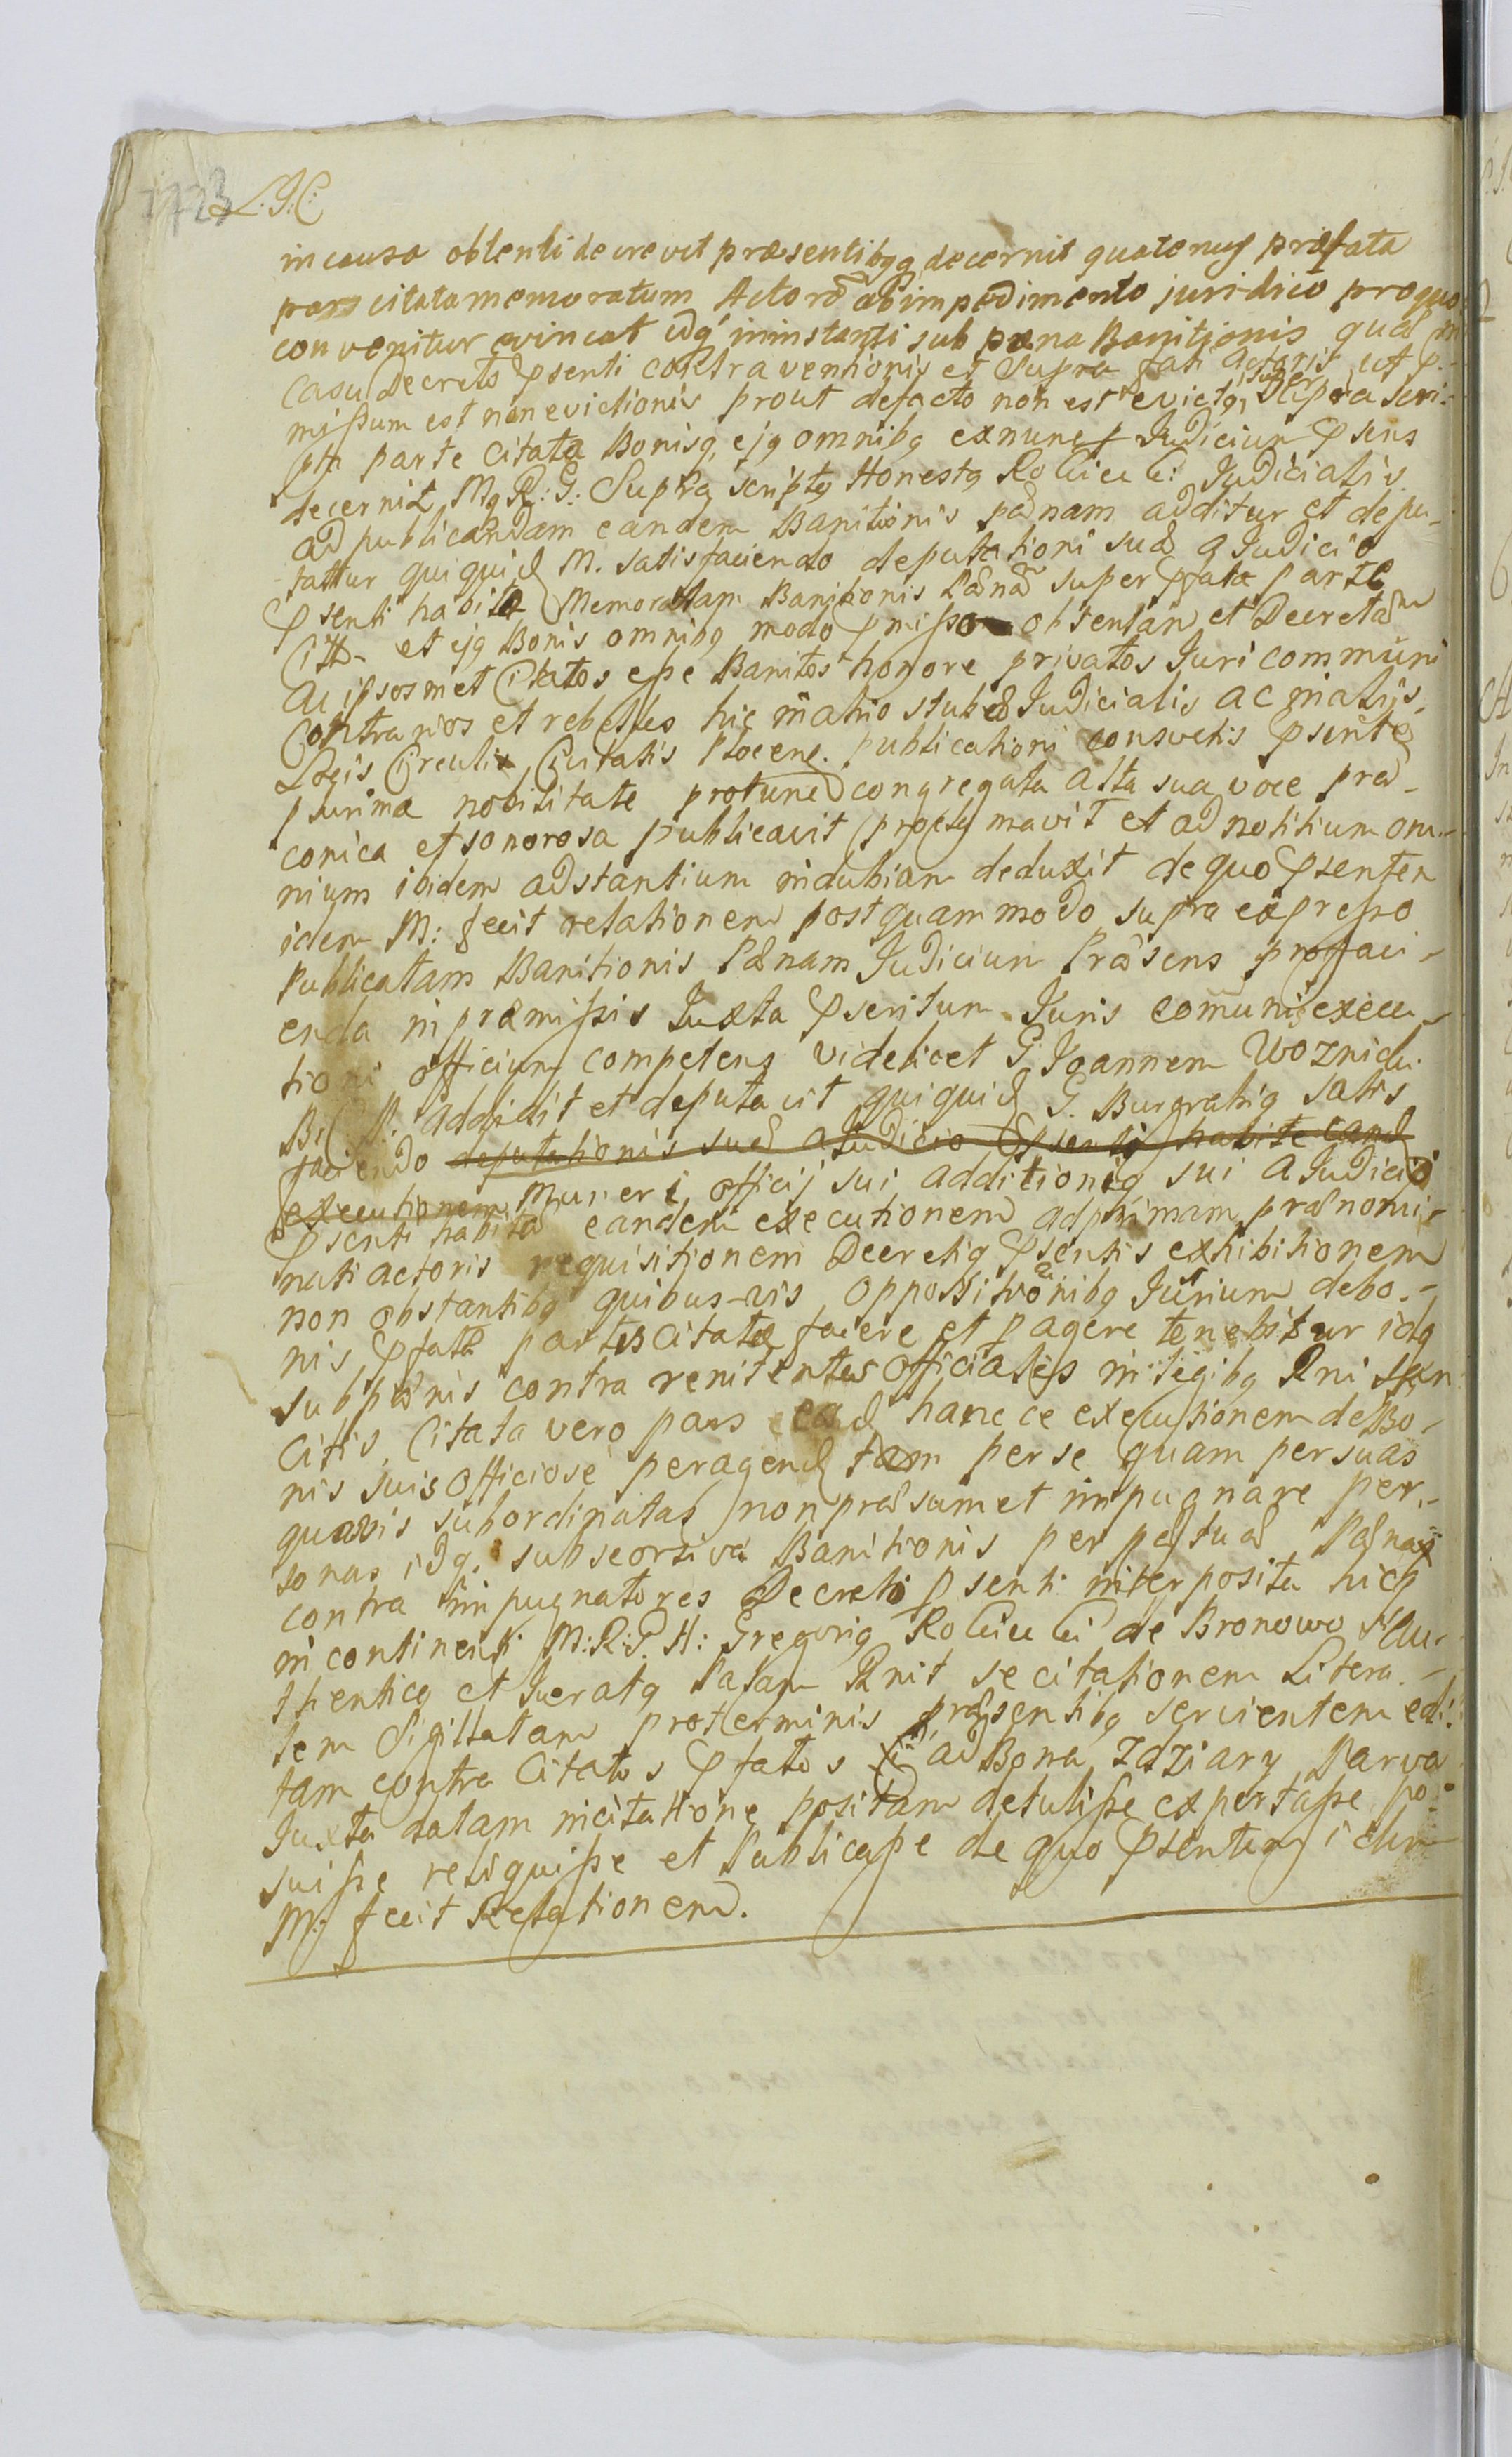 1723 L.J.C.
in causa obtenti decrevit præsentibqq decernit quatenus præfata
pars citata memoratum Actorē ab impedimento juridico pro quo
convenitur evincat idq ininstanti sub pæna Banitionis quā in
casu Decreto Psenti contraventionis et Supra fati actoris ut P-
missum est non evictionis prout defacto non est evictq, super supra scri-
pta parte Citata Bonisq, ejq omnibq exnunc Judicium Psens
decernit, Mq R: G: Supra scriptq Honestq Judicialis
ad publicandam eandem Banitionis pænam additur et depu-
tattur quiquid M. satisfaciendo deputationi suæ a Judicio
Psenti habitæ Memoratam Banitionis Pænā super Pfata parte
Citt- et ejq Bonis omnibq modo Pmisso obtentan et Decretam
ac ipsosmet Citatos esse Banitos honore privatos Juri communi
Contrarios et rebelles hic in atrio stubæ Judicialis ac in alijs
Locis Circuli Civitatis Plocen. publicationi consvetis Psente
plurima nobilitate protunc congregata alta sua voce præ-
conica et sonorosa publicavit proclamavit et ad notitium om-
nium ibidem adstantium indubiam deduxit de quo Psenter
idem M: fecit relationem postquam modo supra expresso
Publicatam Banitionis Pænam Judicium Præsens pro faci-
enda in præmissis Juxta Pscritum Juris comunis execu-
tioni officium competens videlicet G. Joannem Woznicki
B. P. addidit et deputavit quiquid G. Burgrabiq satis
faciendo deputationis suæ a Judicio Psenti habite eand
executionem Muneri officij sui additioniq sui a Judicio
Psenti habitæ eandem executionem ad primam prænomi-
nati actoris requisitionem Decretiq Psentis exhibitionem
non obstantibq quibus-vis oppossitionibq Jurium debo-
nis Pfatæ partis citatæ facere et Pagere tenebitur idq
sub pænis contra renitentes officiales in legibq Rni san
citis, Citata vero pars ead hance executionem de Bo-
nis suis officiose peragend tam per se quam per suas
quasvis subordinatas non præsumet impugnare per-
sonas idq. sub seorsiva Banitionis perpetuæ Pænas
contra impugnatores Decreti Psenti interposita hicq
in continenti M:R:G. H: Gregoriq de Bronowo Au-
thenticq et Juratq Palam Rnit se citationem Litera-
tem Sigillatam proterminis præsentibq servientem edi-
tam contra Citatos Pfatos ad Bona Zdziary Parva
Juxta datam in citatione positam detulisse expertasse po-
suisse reliquisse et Publicasse de quo Psentem idem
M: fecit Relationem.